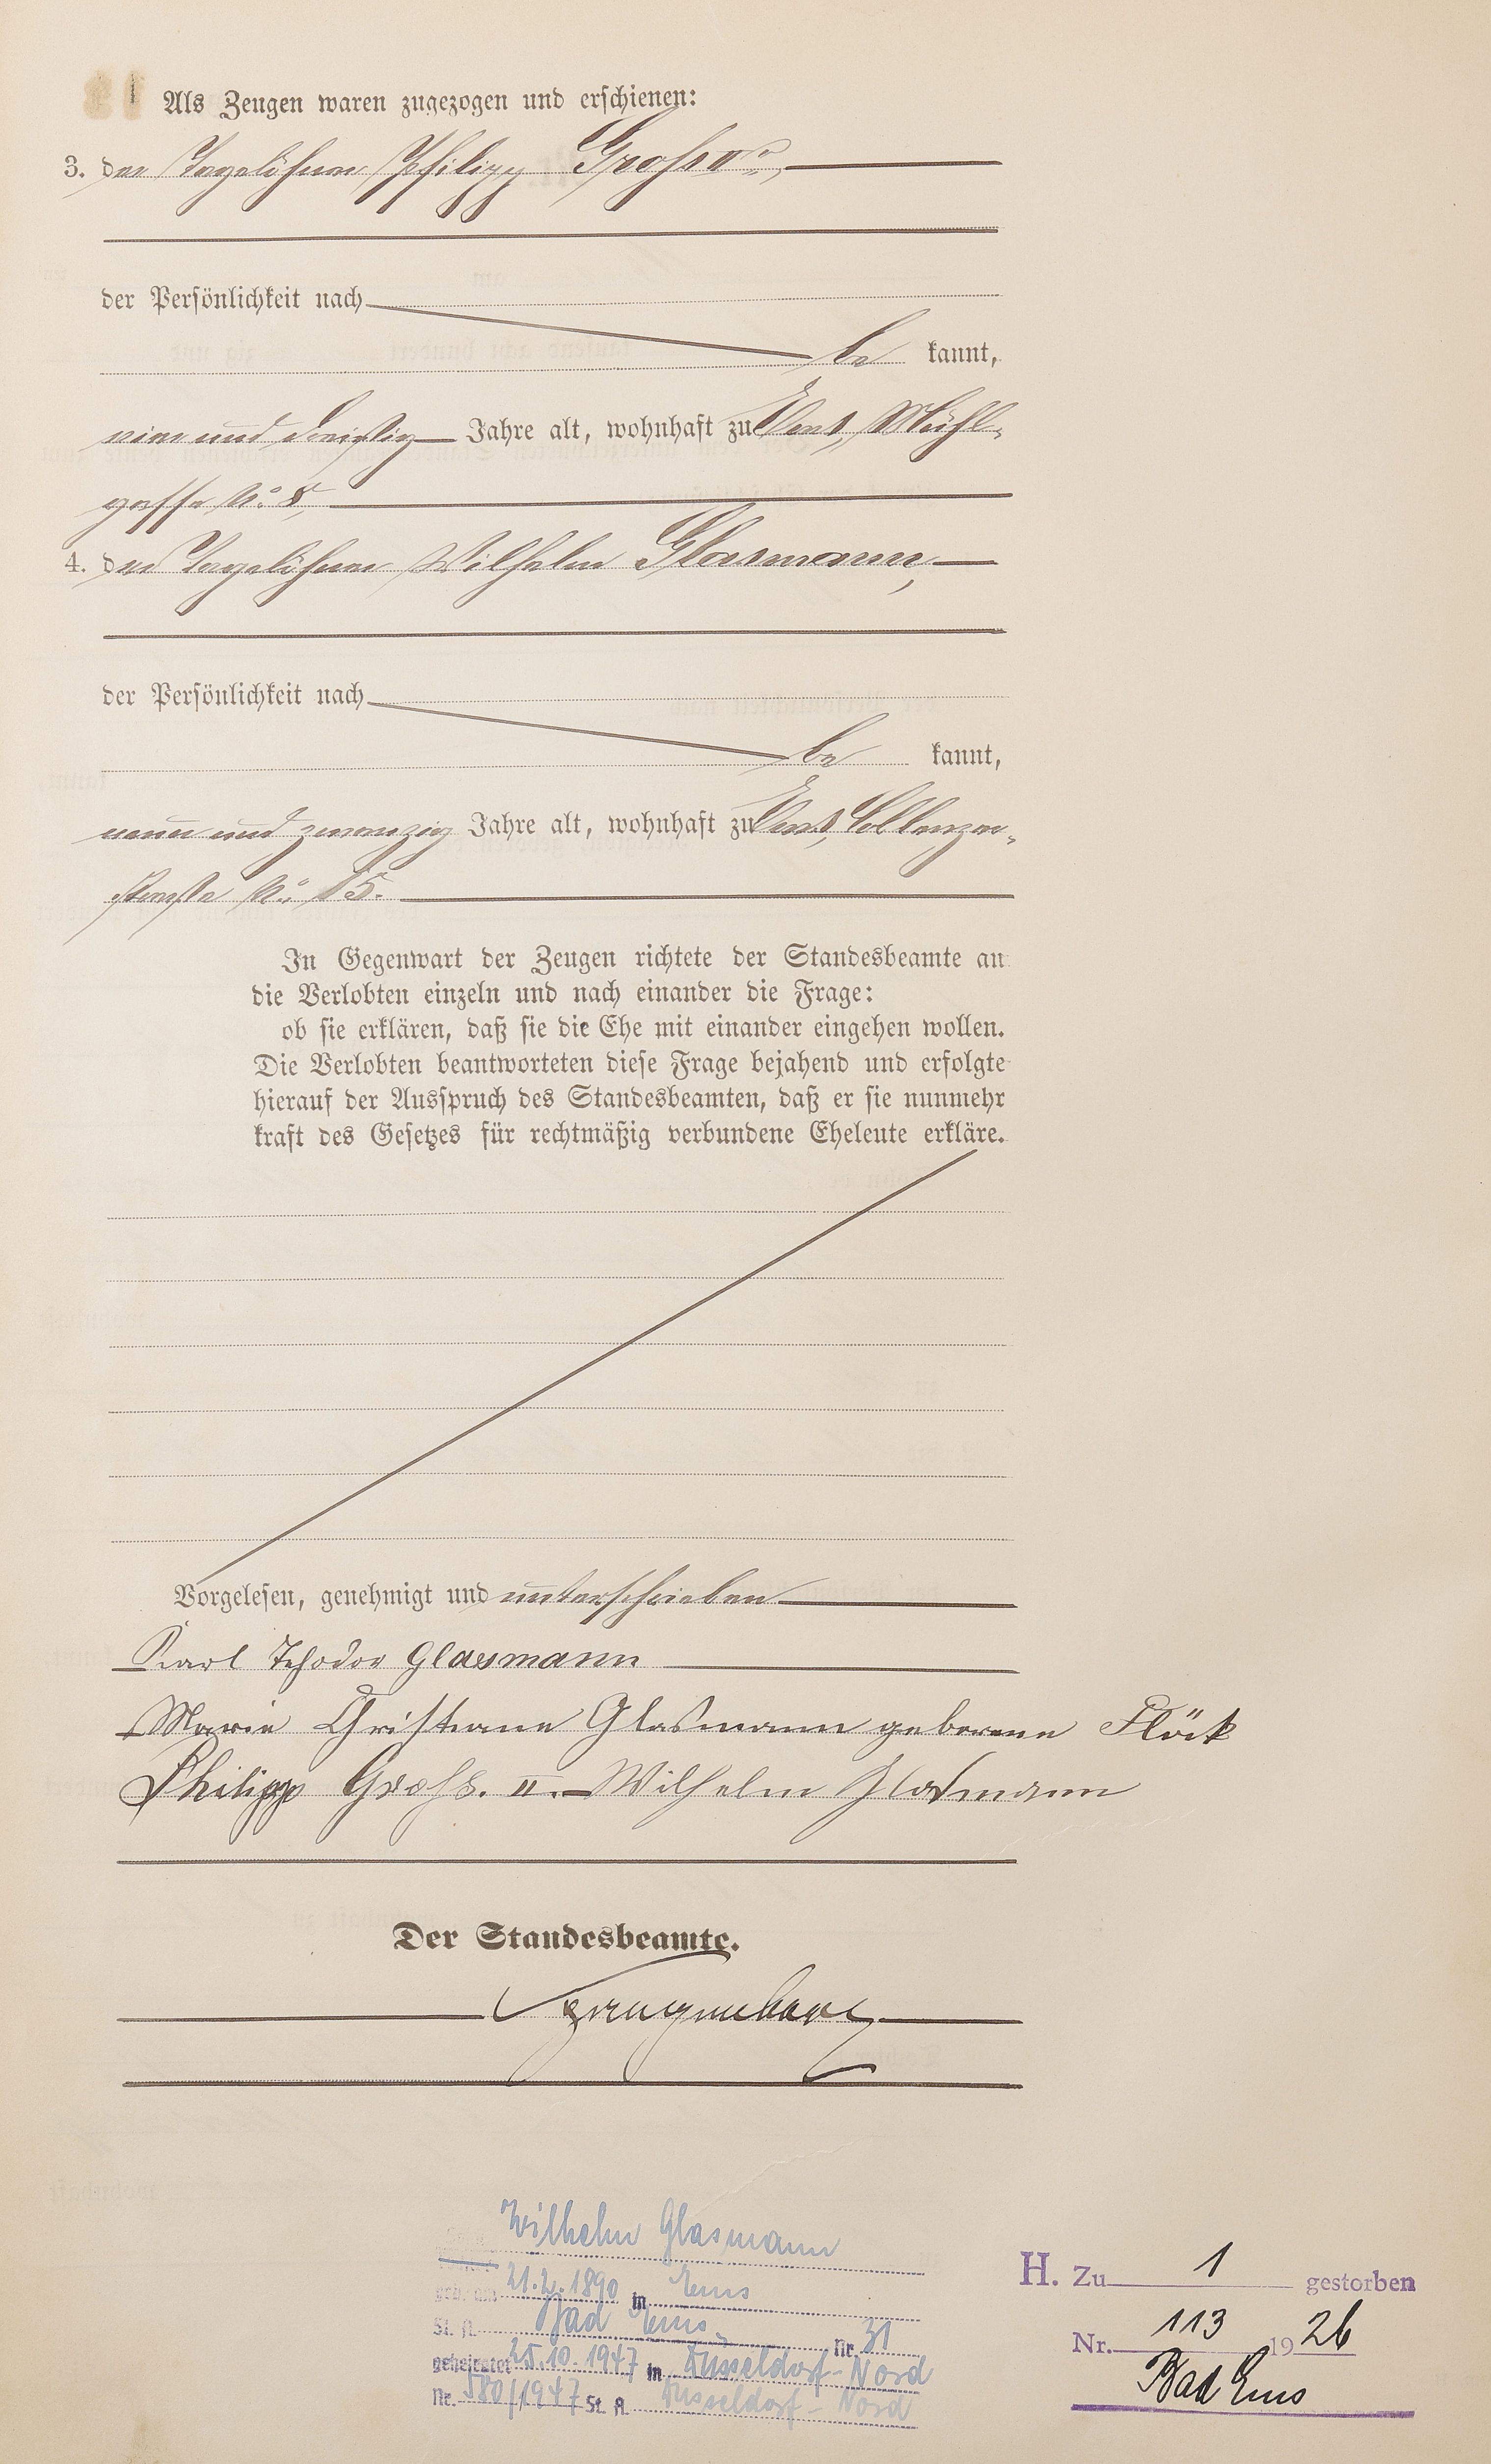 Als Zeugen waren zugezogen und erschienen:
3. der Tagelöhner Philipp Groß IIr,
der Persönlichkeit nach
be kannt,
ein und dreißig Jahre alt, wohnhaft zu Ems, Mühl-
gasse No. 8,
4. der Tagelöhner Wilhelm Glasmann,
der Persönlichkeit nach
be kannt,
neun und zwanzig Jahre alt, wohnhaft zu Ems, Coblenzer-
straße No. 15.
In Gegenwart der Zeugen richtete der Standesbeamte an
die Verlobten einzeln und nach einander die Frage:
ob sie erklären, daß sie die Ehe mit einander eingehen wollen.
Die Verlobten beantworteten diese Frage bejahend und erfolgte
hierauf der Ausspruch des Standesbeamten, daß er sie nunmehr
kraft des Gesetzes für rechtmäßig verbundene Eheleute erkläre.
Vorgelesen, genehmigt und unterschrieben
Karl Tehodor Glasmann
Marie Christiane Glasmann geborene Flöck
Philipp Groß. II. Wilhelm Glasmann
Der Standesbeamte.
Wilhelm Glasmann
geb. am 21.2.1890 in Ems
St. A. Bad Ems Nr. 31
geheiratet 25.10.1947 in Düsseldorf-Nord
Nr. 580/1947 St. A. Düsseldorf-Nord
H. Zu 1 gestorben
Nr. 113 1926
Bad Ems